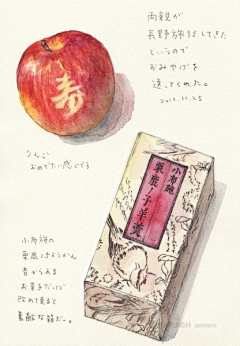 両親が
長野旅行してきた
というので
おみやげを
送ってくれた。
2013.11.25
寿
りんご
おめでたい感じです
小布施
栗鹿ノ子羊羹
小布施の
栗鹿ノ子ようかん
昔からある
お菓子だけど
改めて見ると
素敵な箱だー。
annex